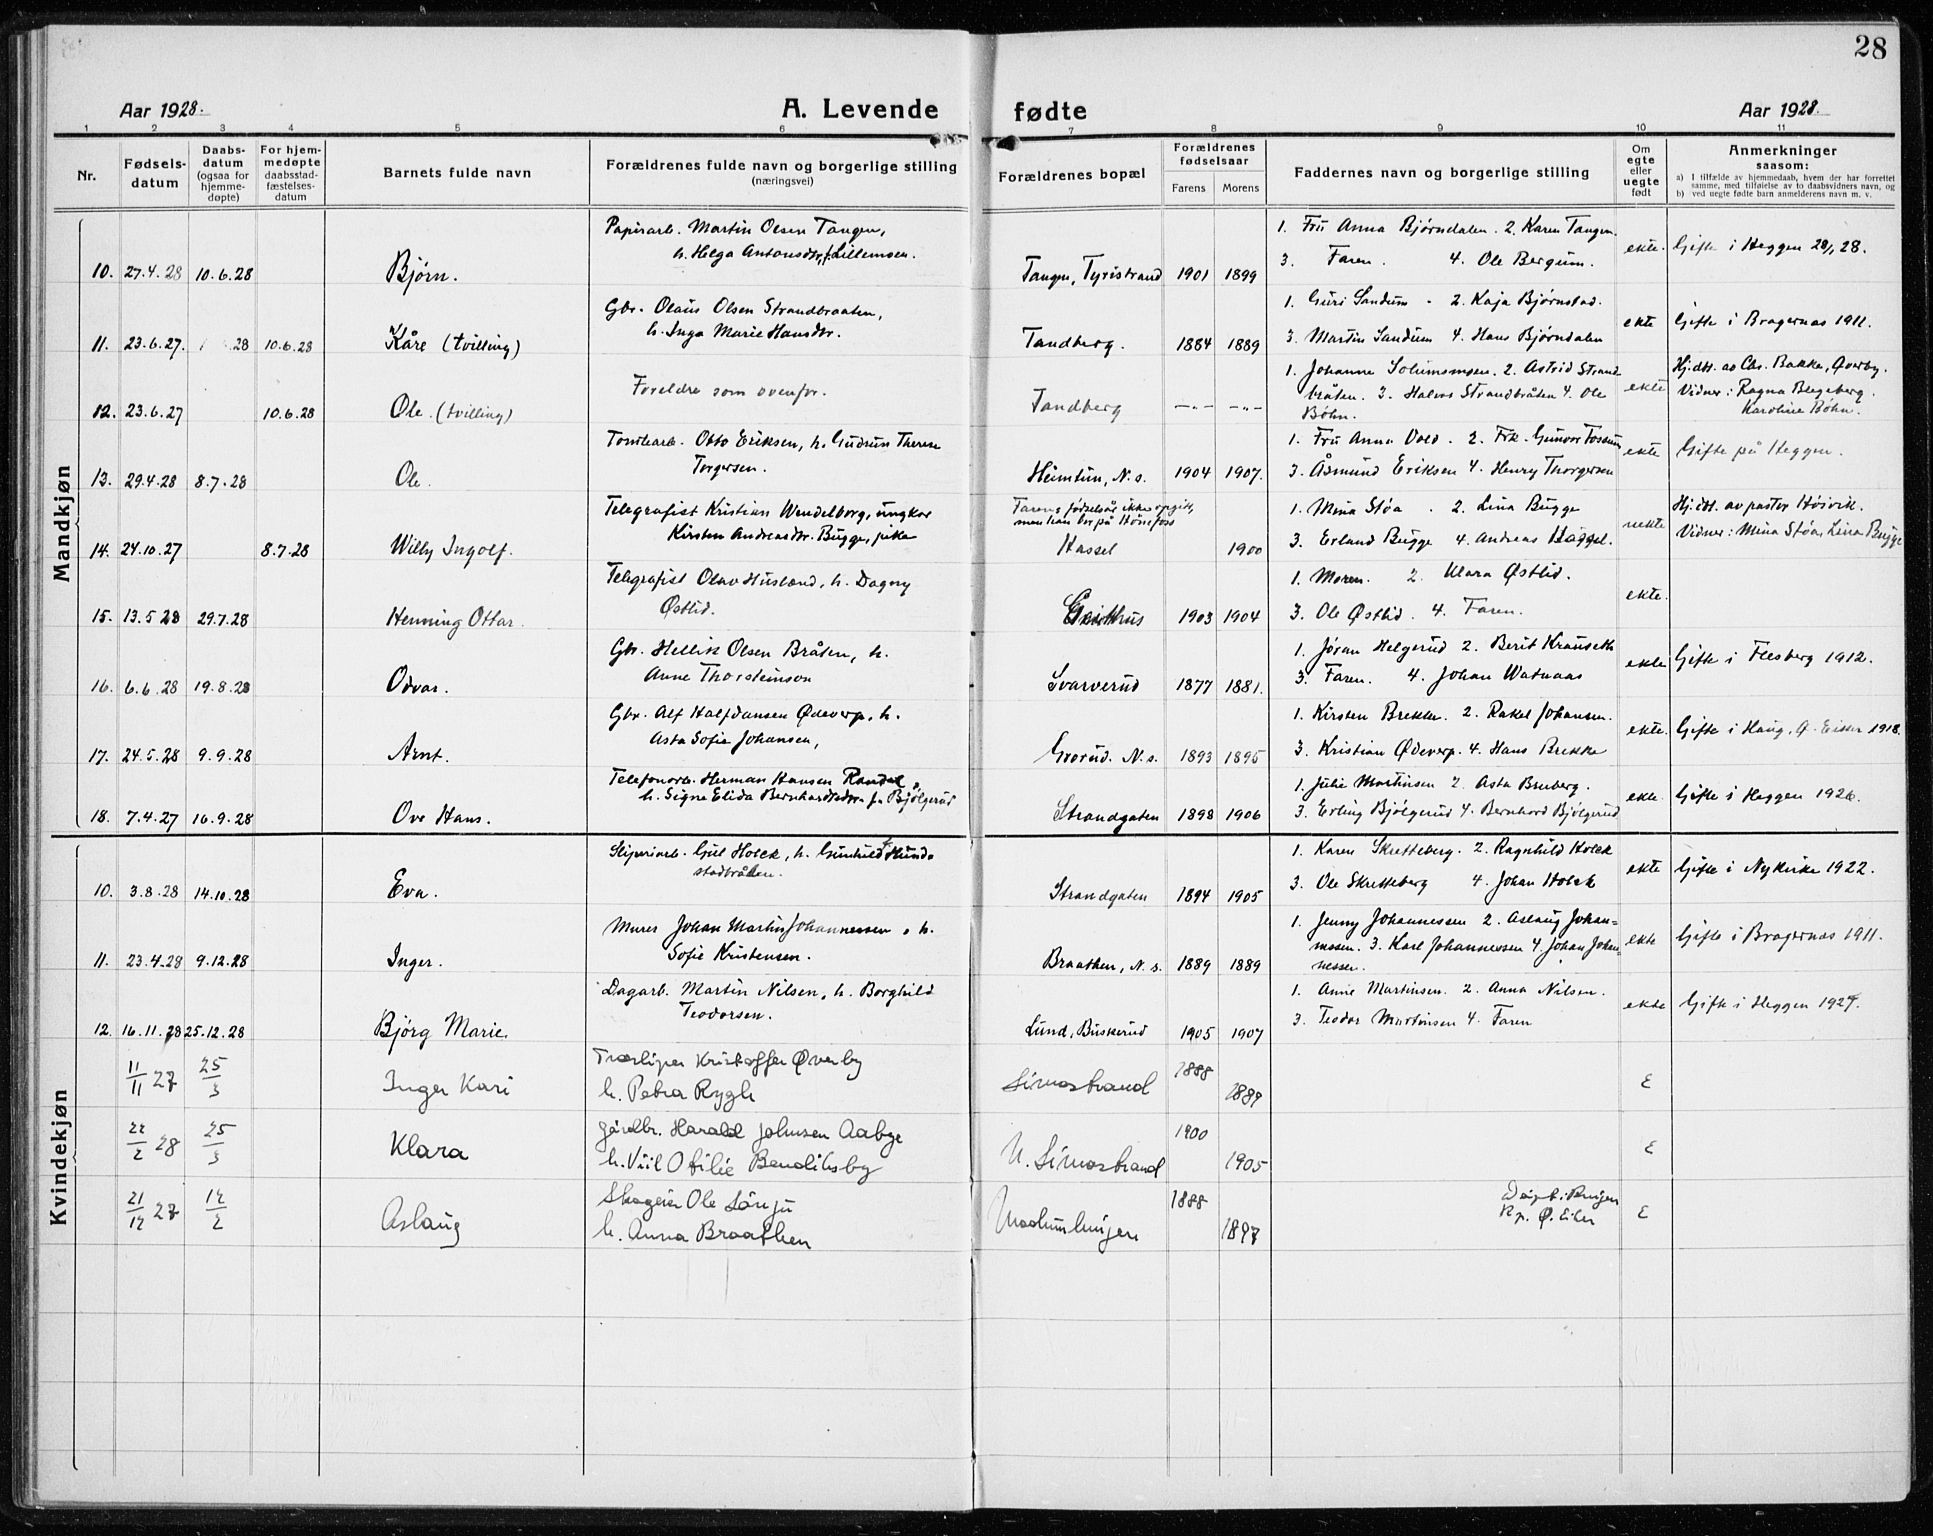 28
Aar 1928.
A. Levende fødte
Aar 1928.
1 2 3 4 5 6 7 8 9 10 11
Nr.
Fødsels-
datum
Daabs-
datum
(ogsaa for
hjemme-
døpte)
For hjem-
medøpte
daabsstad-
fæstelses-
datum
Barnets fulde navn
Forældrenes fulde navn og borgerlige stilling
(næringsvei)
Forældrenes bopæl
Forældrenes
fødselsaar
Farens Morens
Faddernes navn og borgerlige stilling
Om
egte
eller
uegte
født
Anmerkninger
saasom:
a) I tilfælde av hjemmedaab, hvem der har forrettet
samme, med tilføielse av to daabsvidners navn, og
b) ved uegte fødte barn anmelderens navn m. v.
Mandkjøn
Papirarb. Martin Olsen Tangen,
h. Helga Antonsdtr. f. Lillemoen.
10. 27.4.28 10.6.28 Bjørn.
Tangen, Tyristrand 1901 1899
1. Fru Anna Bjørndalen. 2. Karen Tangen.
3. Faren. 4. Ole Bergum.
ekte. Gifte i Heggen 28.
Gbr. Olaus Olsen Strandbraaten,
h. Inga Marie Hansdtr.
11. 23.6.27. 28 10.6.28 Kåre (tvilling)
Tandberg. 1884 1889
1. Guri Sandum. 2. Kaja Bjørnstad.
3. Martin Sandum 4. Hans Bjørndalen
ekte Gifte i Bragernas 1911.
Foreldre som ovenfor.
12. 23.6.27 10.6.28 Ole. (tvilling)
Tandberg —"— —"—
1. Johanne 2. Astrid Strand
bråten. 3. Halvor Strandbråten 4. Ole
Bøhn.
ekte
Hj.dt. av Chr. Bakke, Øverby.
Vidner: Ragna
Karoline Bøhn.
Tomtearb. Otto Eriksen, h. Gudrun Therese
Torgersen.
13. 29.4.28 8.7.28 Ole.
Heimtun, N.s. 1904 1907.
1. Fru Anna Vold. 2. Frk. Gunvor Fossum
3. Åsmund Eriksen 4. Henry Thorgersen
ekte Gifte på Heggen.
Telegrafist Kristian Wendelborg, ungkar
Kirsten Andreasdtr. Bugge, pike
14. 24.10.27 8.7.28 Willy Ingolf.
Farens fødselsår ikke opgitt,
men han bor på Hönefoss
Hassel 1900
1. Mina Støa. 2. Lina Bugge
3. Erland Bugge 4. Andreas
uekte
Hj.dt. av pastor Høivik.
Vidner: Mina Støa, Lina Bugge
Telegrafist Olav Husland, h. Dagny
Østlid.
15. 13.5.28 29.7.28 Henning Ottar.
1903 1904
1. Moren. 2. Klara Østlid.
3. Ole Østlid. 4. Faren.
ekte.
Gbr. Hellik Olsen Bråten, h.
Anne Thorsteinson
16. 6.6.28 19.8.28 Odvar.
Svarverud 1877 1881.
1. Jöran Helgerud 2. Berit Krauseth
3. Faren. 4. Johan Watnaas
ekte Gifte i Flesberg 1912.
Gbr. Alf Halfdansen Ødeverp. h.
Asta Sofie Johansen,
17. 24.5.28 9.9.28 Arnt.
Gvorud. N.s. 1893 1895
1. Kirsten Brekke. 2. Rakel Johansen.
3. Kristian Ødeverp. 4. Hans Brekke
ekte. Gifte i Haug, Ø. Eiker 1918.
Telefonarb. Herman Hansen Randel,
h. Signe Elida Bernhardsdtr. f. Bjölgerud
18. 7.4.27 16.9.28 Ove Hans.
Strandgaten 1898 1906
1. Julie Martinsen 2. Asta Bruberg.
3. Erling Bjölgerud 4. Bernhard Bjölgerud
ekte. Gifte i Heggen 1926.
Kvindekjøn
Sliperiarb. Gul Holck, h. Gunhild
10. 3.8.28 14.10.28 Eva.
Strandgaten 1894 1905
1. Karen Skretteberg. 2. Ragnhild Holck
3. Ole Skretteberg 4. Johan Holck
ekte Gifte i Nykirke 1922.
Murer Johan Martin Johannessen, h.
Sofie Kristensen.
11. 23.4.28 9.12.28 Inger.
Braathen, N.s. 1889 1889
1. Jenny Johannessen 2. Aslaug Johan=
nessen. 3. Karl Johannessen 4. Johan Johan=
nessen.
ekte Gifte i Bragernas 1911.
Dagarb. Martin Nilsen, h. Borghild
Teodorsen.
12. 16.11.28 25.12.28 Bjørg Marie.
Lund, Buskerud 1905 1907
1. Anne Martinsen. 2. Anna Nilsen.
3. Teodor Martinsen 4. Faren
ekte Gifte i Heggen 1927.
11/11 27 25/3 Inger Kari
Træsliper Kristoffer Øverby
h. Petra Rygh
Simostrand 1888 1889 E
22/2 28 25/3 Klara
gårdbr. Harald Johnsen Aabye
h. Otilie Bendiksby
N. Simostrand 1900 1905 E
21/12 27 12/2 Aslaug
Skogeier Ole Sönju
h. Anna Braathen
1888 1897
Døpt i
Ø. Eiker E